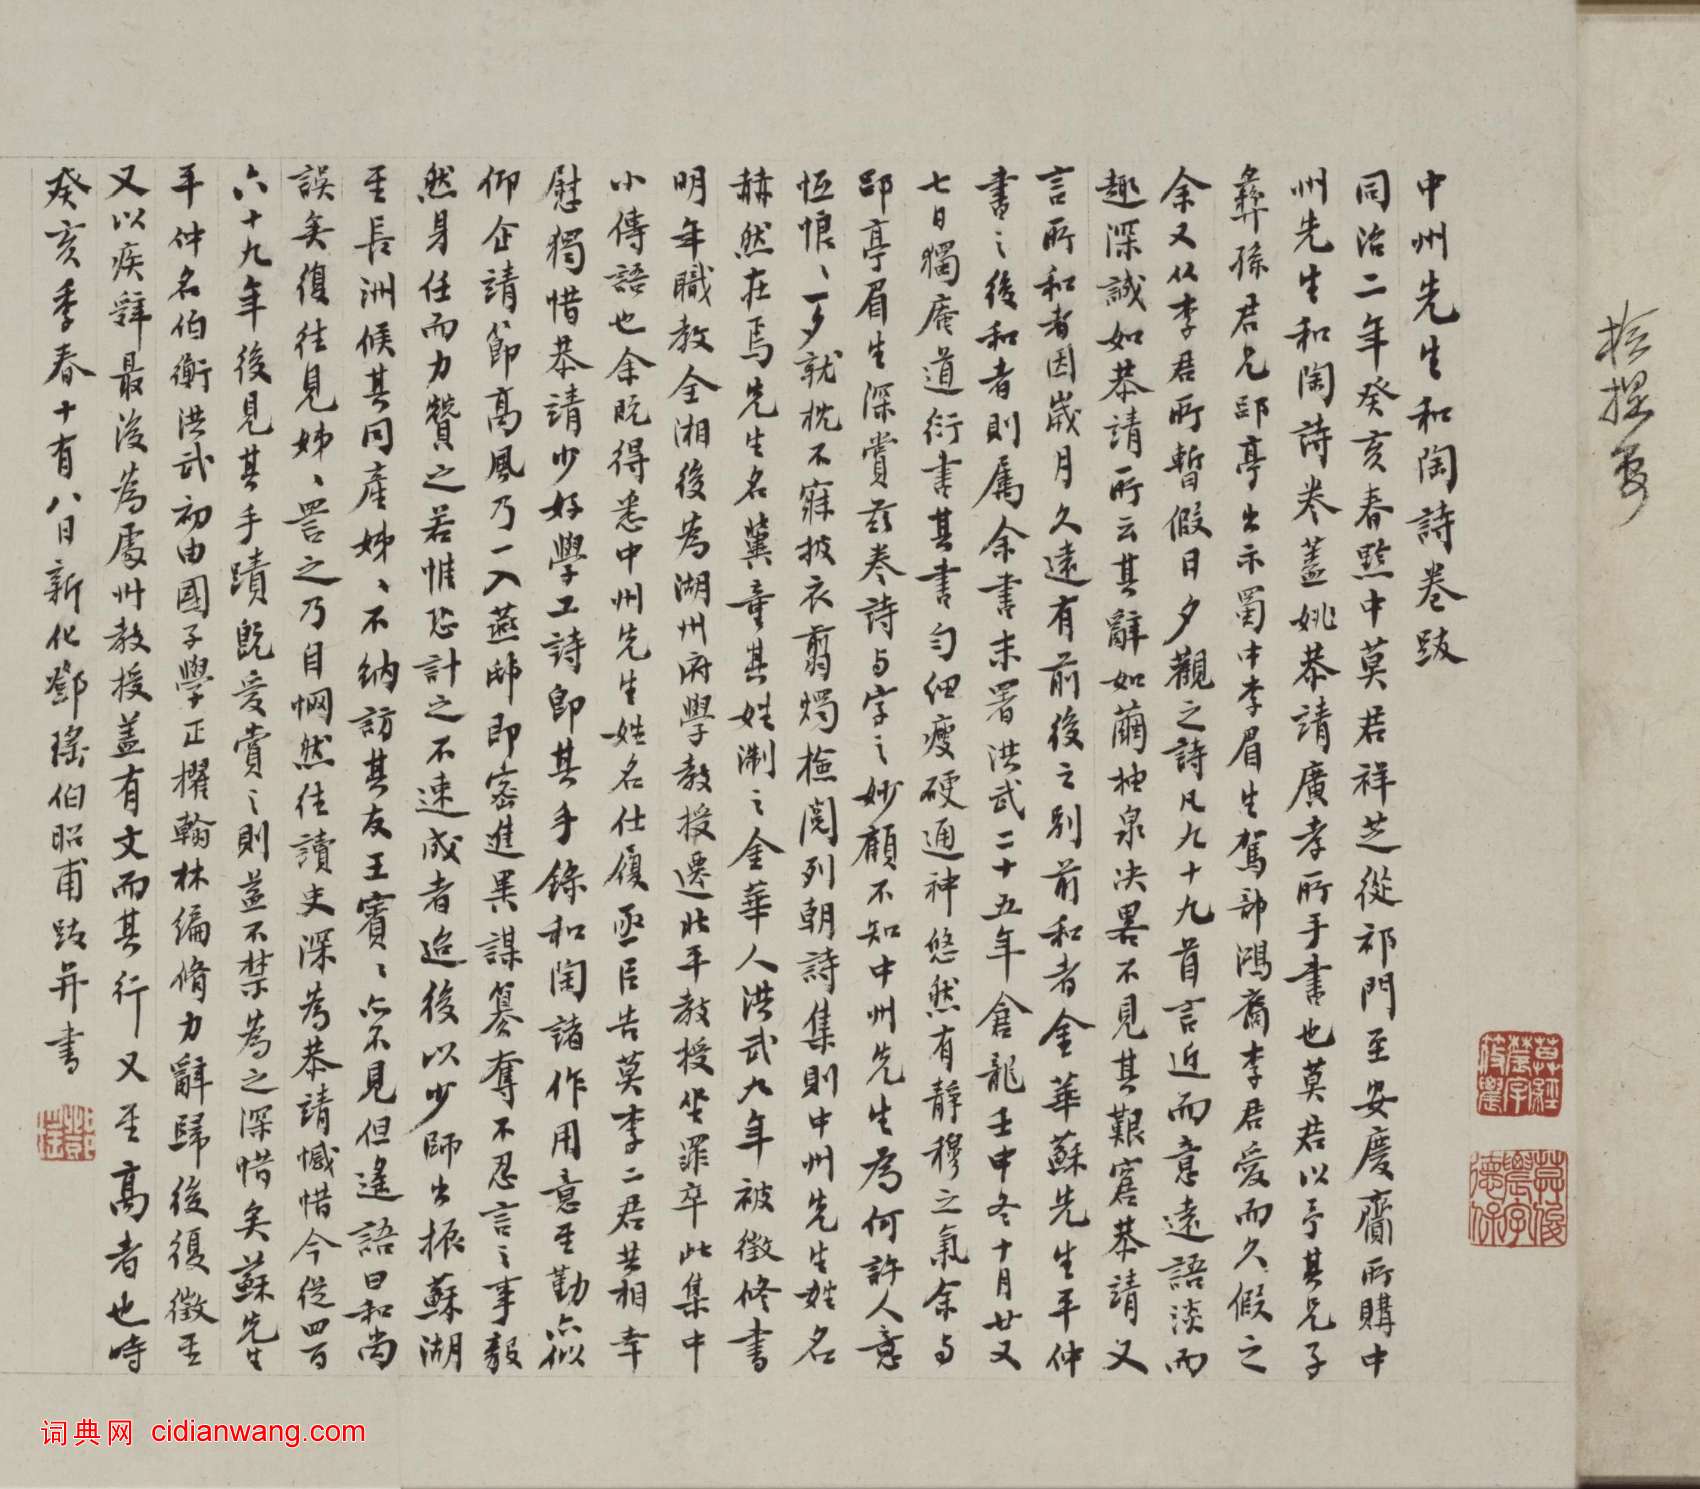 中州先生和陶詩卷跋
同治二年癸亥春黟中莫君祥芝從祁門至安慶齎所購中
州先生和陶詩卷蓋姚恭靖廣孝所手書也莫君以予其兄子
彝孫君兄郘亭出示蜀中李眉生駕部鴻裔李君愛而久假之
余又从李君所暫假日夕觀之詩凡九十九首言近而意遠語淡而
趣深誠如恭靖所云其辭如繭抽泉決畧不見其艱窘恭靖又
言所和者因歲月久遠有前後之别前和者金華蘇先生平仲
書之後和者則属余書末署洪武二十五年倉龍壬申冬十月廿又
七日獨庵道衍書其書勻细瘦硬通神悠然有静穆之氣余与
郘亭眉生深賞兹卷詩与字之妙顧不知中州先生為何許人意
恆悵、一夕就枕不寐披衣剪燭撿閲列朝詩集則中州先生姓名
赫然在焉先生名冀童其姓渊之金華人洪武九年被徵修書
明年職教全湘後為湖州府學教授遷北平教授坐罪卒此集中
小傳語也余既得悉中州先生姓名仕履亟㠯告莫李二君共相幸
慰獨惜恭靖少好學工詩即其手錄和陶諸作用意至勤亦似
仰企靖節高風乃一入燕邸即密進異謀篡奪不忍言之事毅
然身任而力贊之若惟恐計之不速成者迨後以少師出振蘇湖
至長洲候其同産姊、不納訪其友王賓、亦不見但遙語曰和尚
誤矣復往見姊、詈之乃自惘然往讀史深為恭靖憾惜今從四百
六十九年後見其手蹟既愛賞之則益不禁為之深惜矣蘇先生
平仲名伯衡洪武初由國子學正擢翰林編脩力辭歸後復徵至
又以疾辭最後為處州教授蓋有文而其行又至高者也時
癸亥季春十有八日新化鄧瑤伯昭甫跋并書
词典网 cidianwang.com